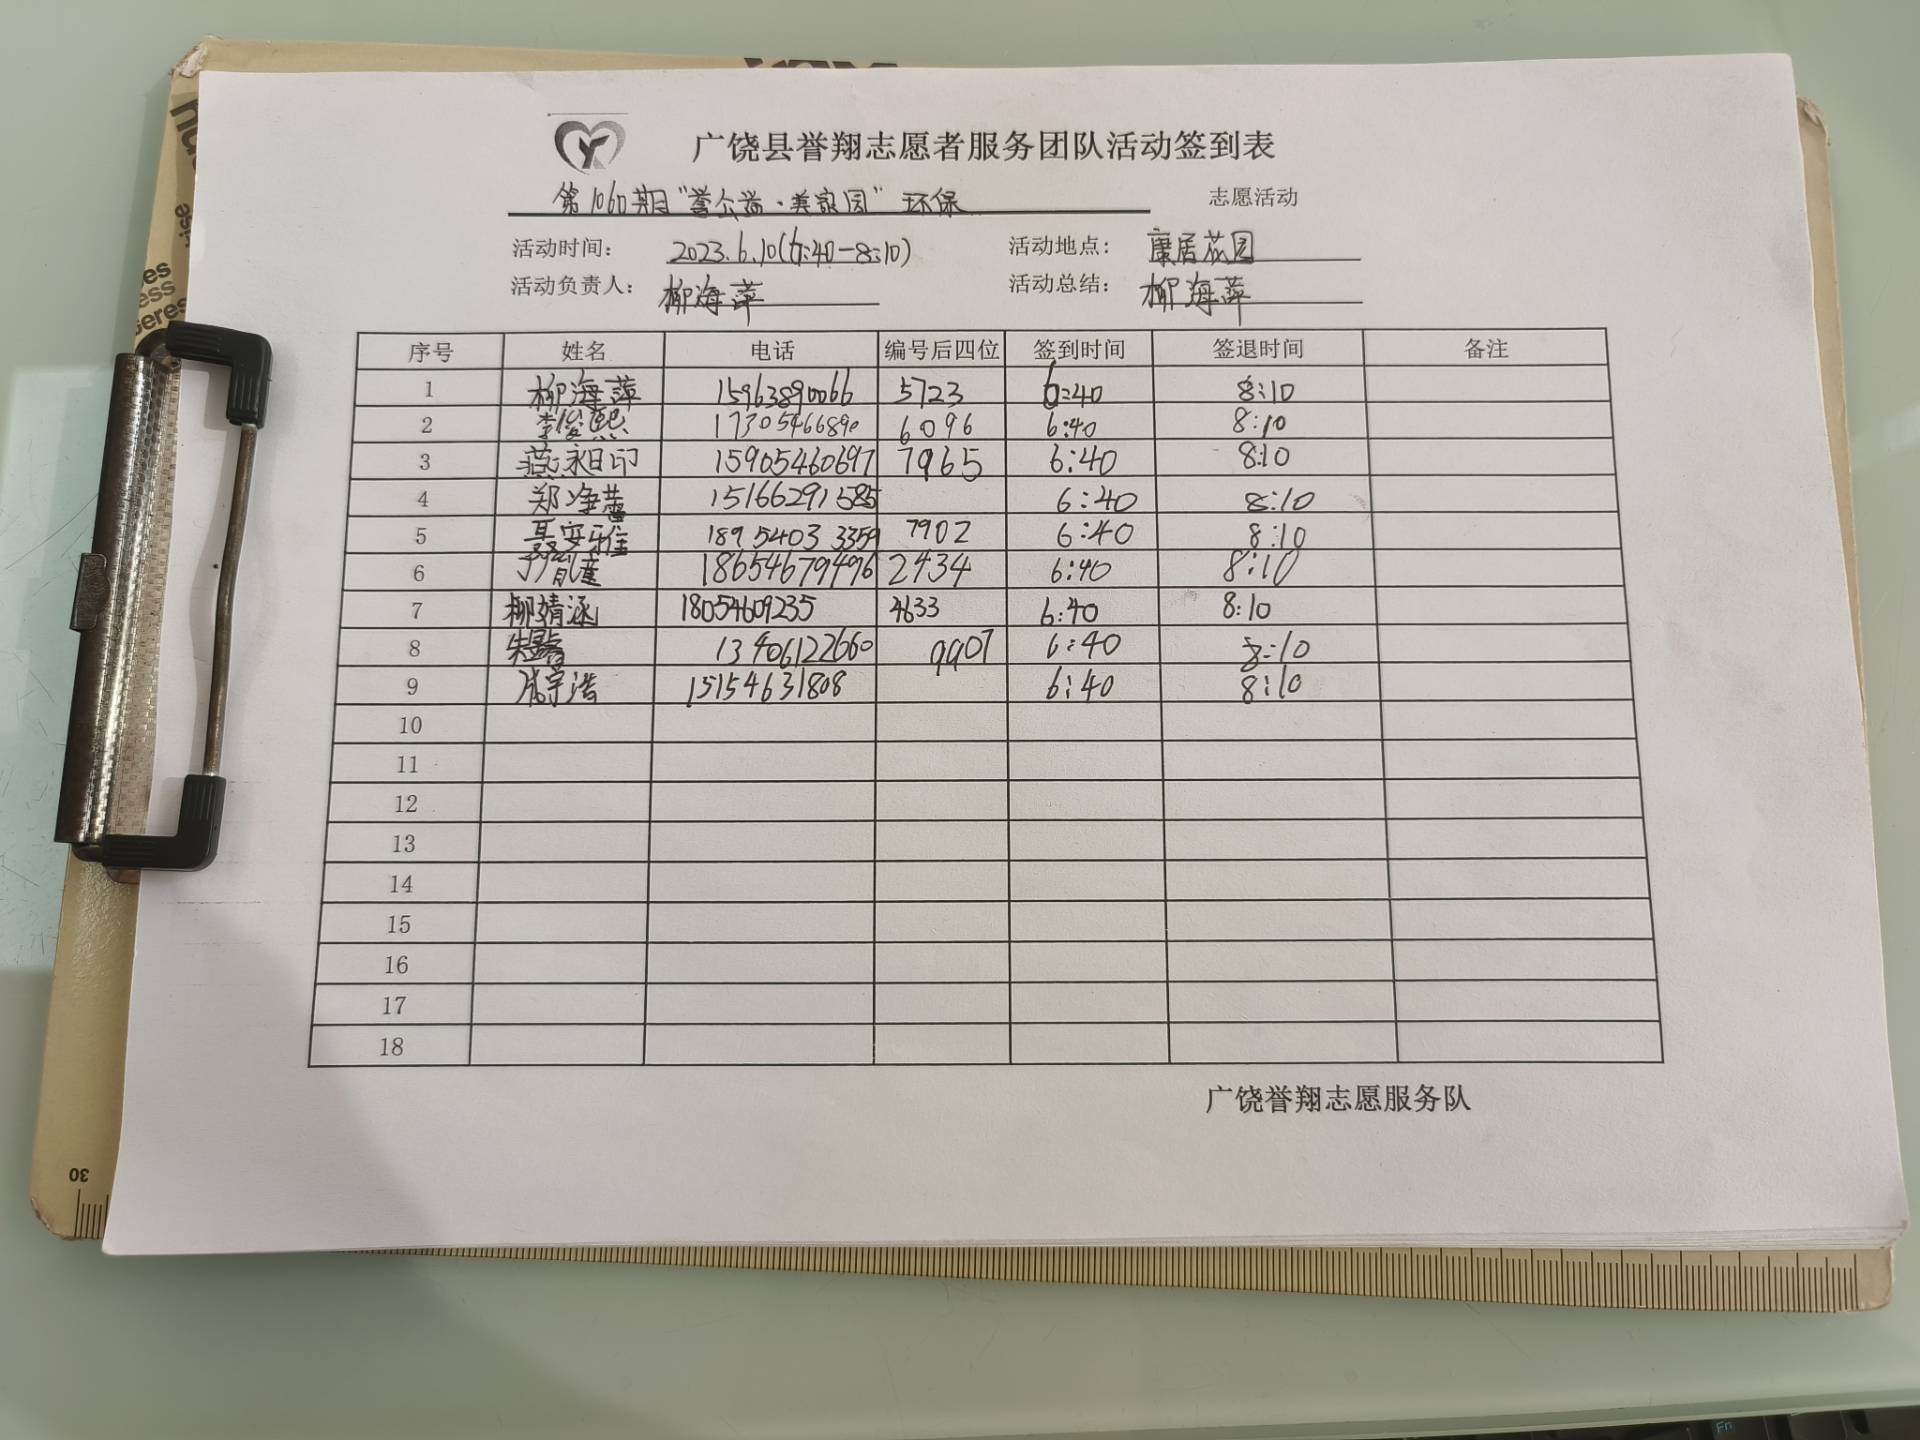 广饶县誉翔志愿者服务团队活动签到表
第1060期"誉公益·美家园"环保 志愿活动
活动时间: 2023.6.10(6:40-8:10) 活动地点: 康居花园
活动负责人: 柳海萍 活动总结: 柳海萍
序号 姓名 电话 编号后四位 签到时间 签退时间 备注
1 柳海萍 15963890066 5723 6:40 8:10
2 李俊熙 17305466890 6096 6:40 8:10
3 15905460697 7965 6:40 8:10
4 15166291585 6:40 8:10
5 聂安雅 18954033359 7902 6:40 8:10
6 18654679496 2434 6:40 8:10
7 柳婧涵 18054609235 4633 6:40 8:10
8 13406122660 9907 6:40 8:10
9 成宇浩 15154631808 6:40 8:10
10
11
12
13
14
15
16
17
18
广饶誉翔志愿服务队
30
Fn